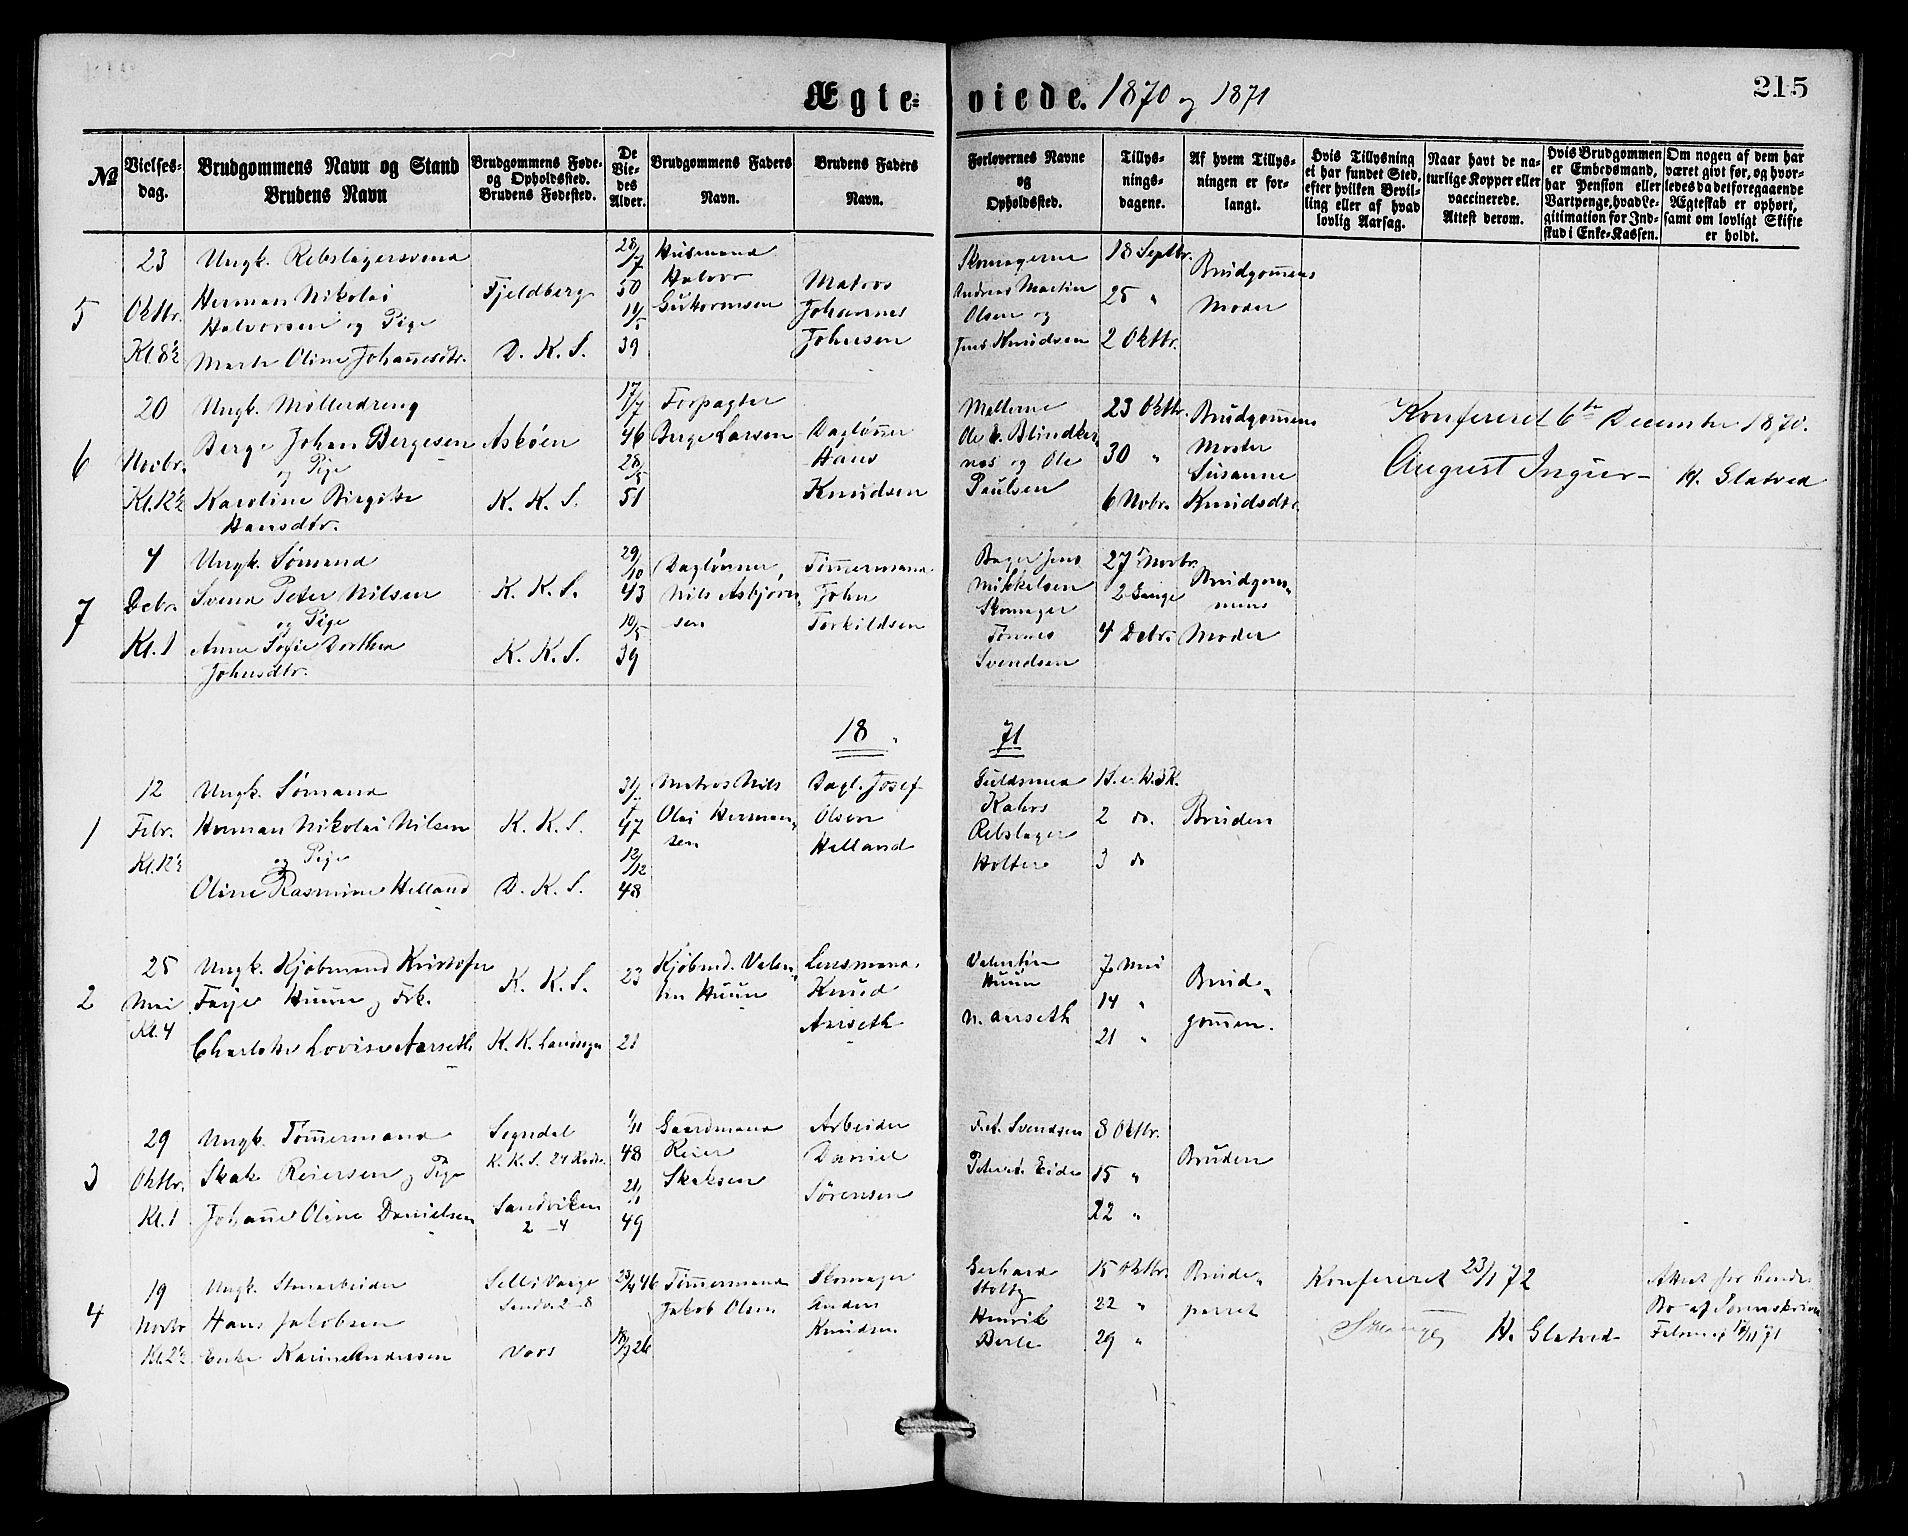 Ægte-viede. 1870 og 1871
215
№
Vielses-dag.
Brudgommens Navn og Stand
Brudens Navn
Brudgommens Føde- og Opholdssted.
Brudens Fødested.
De Viedes Alder.
Brudgommens Faders Navn.
Brudens Faders Navn.
Forlovernes Navne og Opholdssted.
Tillysnings-dagene.
Af hvem Tillysningen er forlangt.
Hvis Tillysning ei har fundet Sted, efter hvilken Bevilling eller af hvad lovlig Aarsag.
Naar havt de naturlige Kopper eller vaccinerede. Attest derom.
Hvis Brudgommen er Embedsmand, har Pension eller Vartpenge, hvad Legitimation for Indskud i Enke-Kassen.
Om nogen af dem har været givt før, og hvorledes da det foregaaende Ægteskab er ophørt, samt om lovligt Skifte er holdt.
5
23
Oktbr.
Kl. 8½
Ungk. Rebslagersvend
Herman Nikolai
Halvorsen og Pige
Marte Oline Johannesdtr.
Fjeldberg
D. K. S.
28/7
50
11/5
39
Husmand
Halvor
Guttormsen
Matros
Johannes
Johnsen
Skomagerne
Andreas Martin
Olsen og
Jens Knudsen
18 Septbr.
25 "
2 Oktbr.
Brudgomens
Moder
6
20
Novbr.
Kl. 12½
Ungk. Møllerdreng
Berge Johan Bergesen
og Pige
Karoline Birgitte
Hansdtr.
Askøen
K. K. S.
17/7
46
28/5
51
Forpagter
Berge Larsen
Dagløner
Hans
Knudsen
Møllerne
Ole E. Blindker-
nes og Ole
Paulsen
23 Oktbr.
30 "
6 Nvbr.
Brudgomens
Moster
Susanne
Knudsdtr.
Konfereret 6te December 1870.
August Ingier
H. Glatved
7
4
Debr.
Kl. 1
Ungk. Sømand
Svend Peter Nilsen
og Pige
Anne Sofie Dorthea
Johnsdtr.
K. K. S.
K. K. S.
29/10
43
10/5
39
Dagløner
Nils Asbjørn-
sen
Tømermand
John
Torkildsen
Bager Jens
Mikkelsen
Skomager
Tønnes
Svendsen
27 Novbr.
2 Gange
4 Debr.
Brudgom-
mens
Moder
18 71
1
12
Febr.
Kl. 12½
Ungk. Sømand
Herman Nikolai Nilsen
og Pige
Oline Rasmine Helland
K. K. S.
D. K. S.
47
12/12
48
Matros Nils
Olai Herman-
sen
Dagl. Josef
Olsen
Helland
Guldsmed
Kahrs
Rebslager
Holter
2 do.
3 do
Bruden
2
25
Mai
Kl. 4
Ungk. Kjøbmand Kristofer
Faye Huun og Frk.
Charlotte Lovise Aarseth
K. K. S.
23
21
Kjøbmd. Valen-
tin Huun
Lensmand
Knud
Aarseth
Valentin
Huun
N. Aarseth
7 Mai
14 "
21 "
Brud-
gommen.
3
29
Oktbr.
Kl. 1
Ungk. Tømermand
Skak Reiersen og Pige
Johanne Oline Danielsen
Sogndal
Sandviken
2 – 4
1/11
48
49
Gaardmand
Reier
Skaksen
Arbeider
Daniel
Sørensen
Svendsen
Eide
8 Oktbr.
15 "
22 "
Bruden
4
19
Novbr
Kl. 2½
Ungk. Stenarbeider
Hans Jakobsen
Enke Karine Andersen
Voss
46
26
Tømermand
Jakob Olsen
Skomager
Anders
Knudsen
Gerhard
Stoltz
Henrik
Berle
15 Oktbr.
22 "
29 "
Brude-
parret
Konfereret 23/1 72
H. Glatved
Attest for hendes
Bo af Sorenskriver